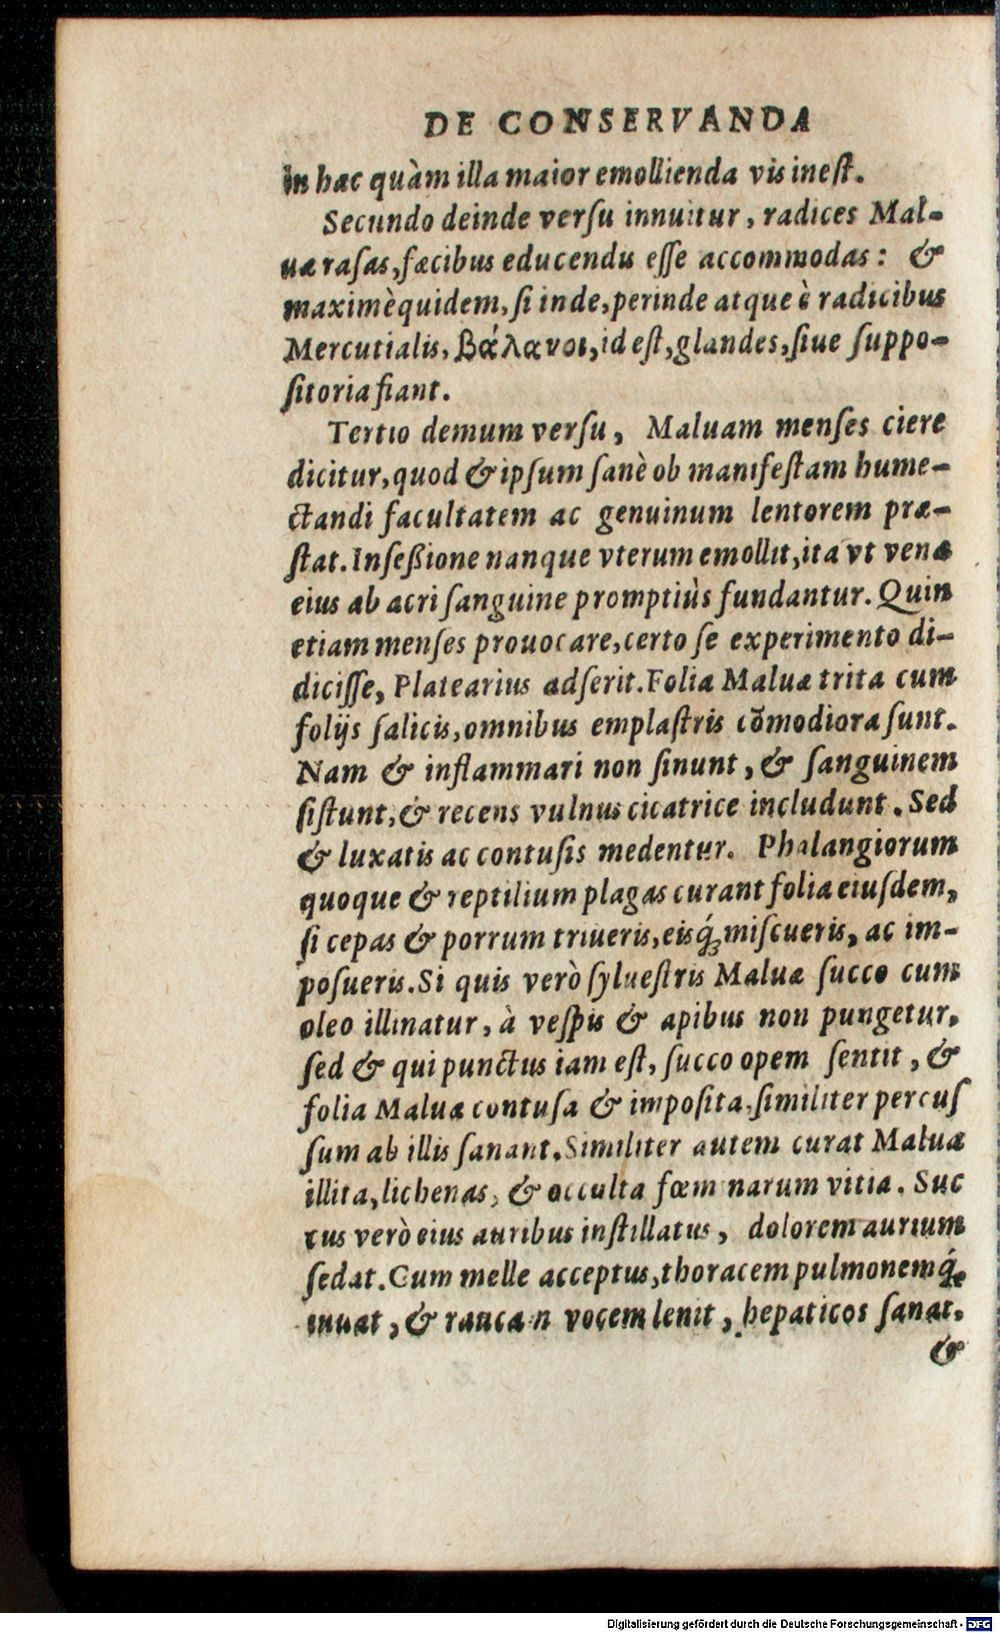 DE CONSERVANDA
in hac quàm illa maior emollienda vis inest.
Secundo deinde versu innuitur, radices Mal-
uæ rasas, fæcibus educendis esse accommodas: &
maximè quidem, si inde, perinde atque è radicibus
Mercurialis, βάλανοι, id est, glandes, siue suppo-
sitoria fiant.
Tertio demum versu, Maluam menses ciere
dicitur, quod & ipsum sanè ob manifestam hume-
ctandi facultatem ac genuinum lentorem præ-
stat. Inseßione nanque vterum emollit, ita vt venæ
eius ab acri sanguine promptiùs fundantur. Quin
etiam menses prouocare, certo se experimento di-
dicisse, Platearius adserit. Folia Maluæ trita cum
folijs salicis, omnibus emplastris cõmodiora sunt.
Nam & inflammari non sinunt, & sanguinem
sistunt, & recens vulnus cicatrice includunt. Sed
& luxatis ac contusis medentur. Phalangiorum
quoque & reptilium plagas curant folia eiusdem,
si cepas & porrum triueris, eisq́; miscueris, ac im-
posueris. Si quis verò syluestris Maluæ succo cum
oleo illinatur, à vespis & apibus non pungetur.
sed & qui punctus iam est, succo opem sentit, &
folia Maluæ contusa & imposita, similiter percus
sum ab illis sanant. Similiter autem curat Maluæ
illita, lichenas, & occulta fœminarum vitia. Suc
cus verò eius auribus instillatus, dolorem aurium
sedat. Cum melle acceptus, thoracem pulmonemq́;
iuuat, & raucam vocem lenit, hepaticos sanat.
&
Digitalisierung gefördert durch die Deutsche Forschungsgemeinschaft - DFG